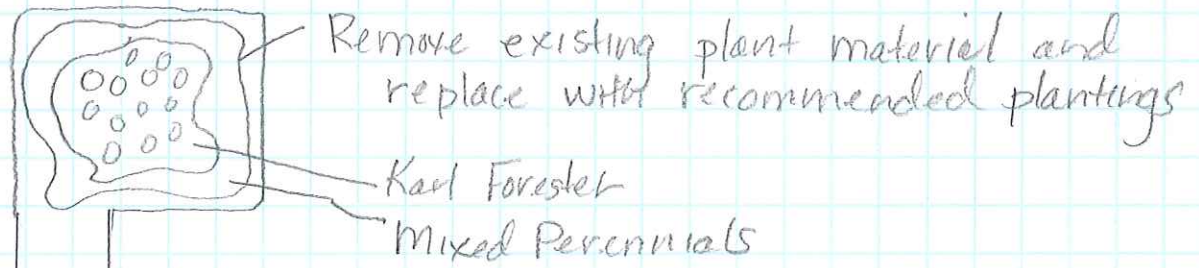 Remove existing plant material and
replace with recommended plantings
Karl Forester
Mixed Perennials